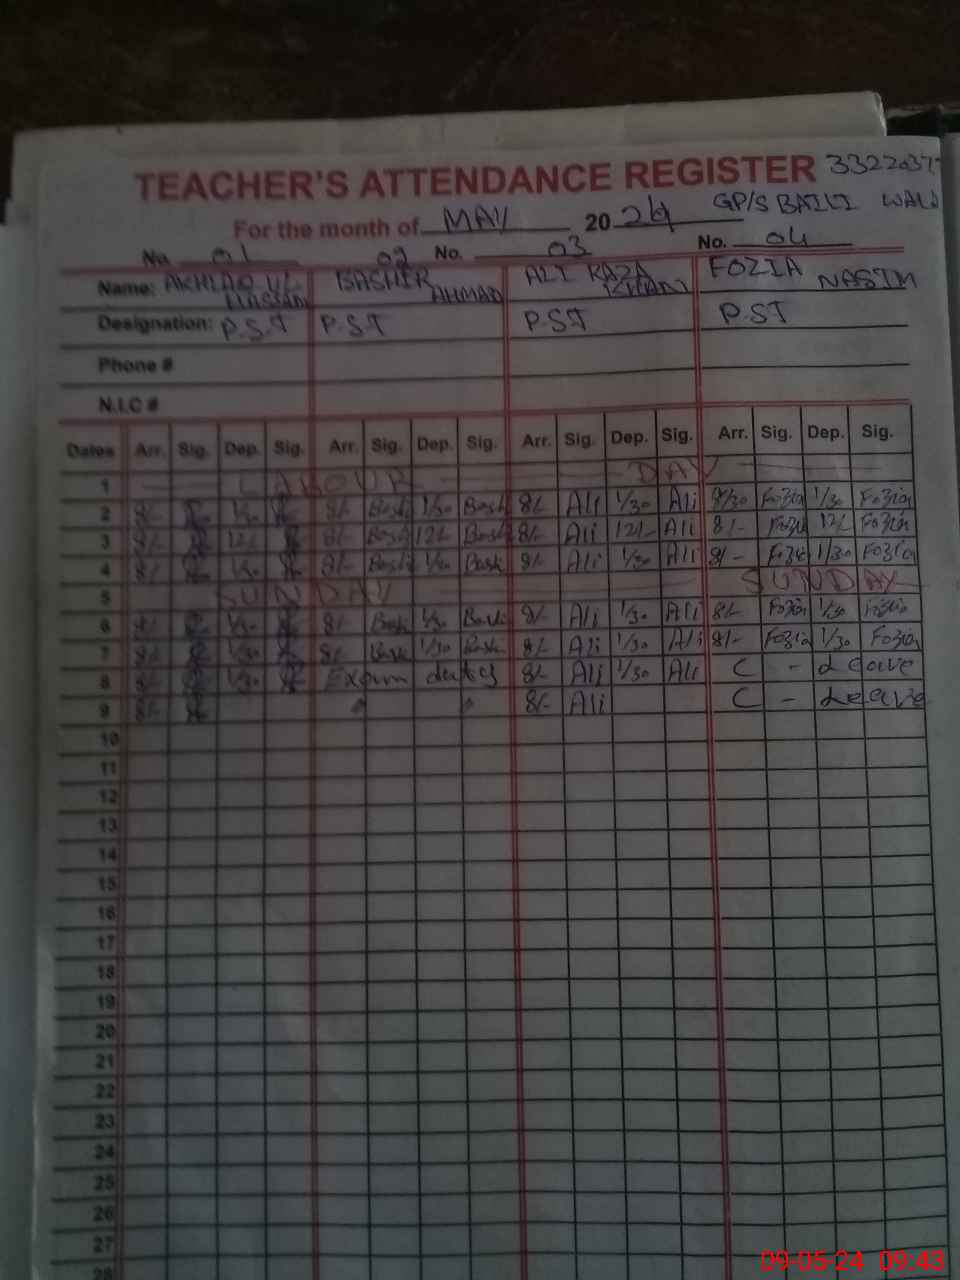 TEACHER'S ATTENDANCE REGISTER 3322037
For the month of MAY 2024 GP/S BAILI WALA
No. 01 02 No. 03 No. 04
Name: AKHLAQ UL HASSAN BASHIR AHMAD ALI RAZA KHAN FOZIA NASIM
Designation: P.S.T P.S.T P.S.T P.S.T
Phone #
N.I.C #
Dates Arr. Sig. Dep. Sig. Arr. Sig. Dep. Sig. Arr. Sig. Dep. Sig. Arr. Sig. Dep. Sig.
1 LABOUR DAY
2 8/- 1/30 8/- Bash 1/30 Bash 8/- Ali 1/30 Ali 8/30 Fozia 1/30 Fozia
3 8/- 12/- 8/- Bash 12/- Bash 8/- Ali 12/- Ali 8/- Fozia 12/- Fozia
4 8/- 1/30 8/- Bash 1/30 Bash 8/- Ali 1/30 Ali 8/- Fozia 1/30 Fozia
5 SUNDAY SUNDAY
6 8/- 1/30 8/- Bash 1/30 Bash 8/- Ali 1/30 Ali 8/- Fozia 1/30 Fozia
7 8/- 1/30 8/- Bash 1/30 Bash 8/- Ali 1/30 Ali 8/- Fozia 1/30 Fozia
8 8/- 1/30 Exam 8/- Ali 1/30 Ali C - Leave
9 8/- " " 8/- Ali C - Leave
10
11
12
13
14
15
16
17
18
19
20
21
22
23
24
25
26
27
28
09-05-24 09:43